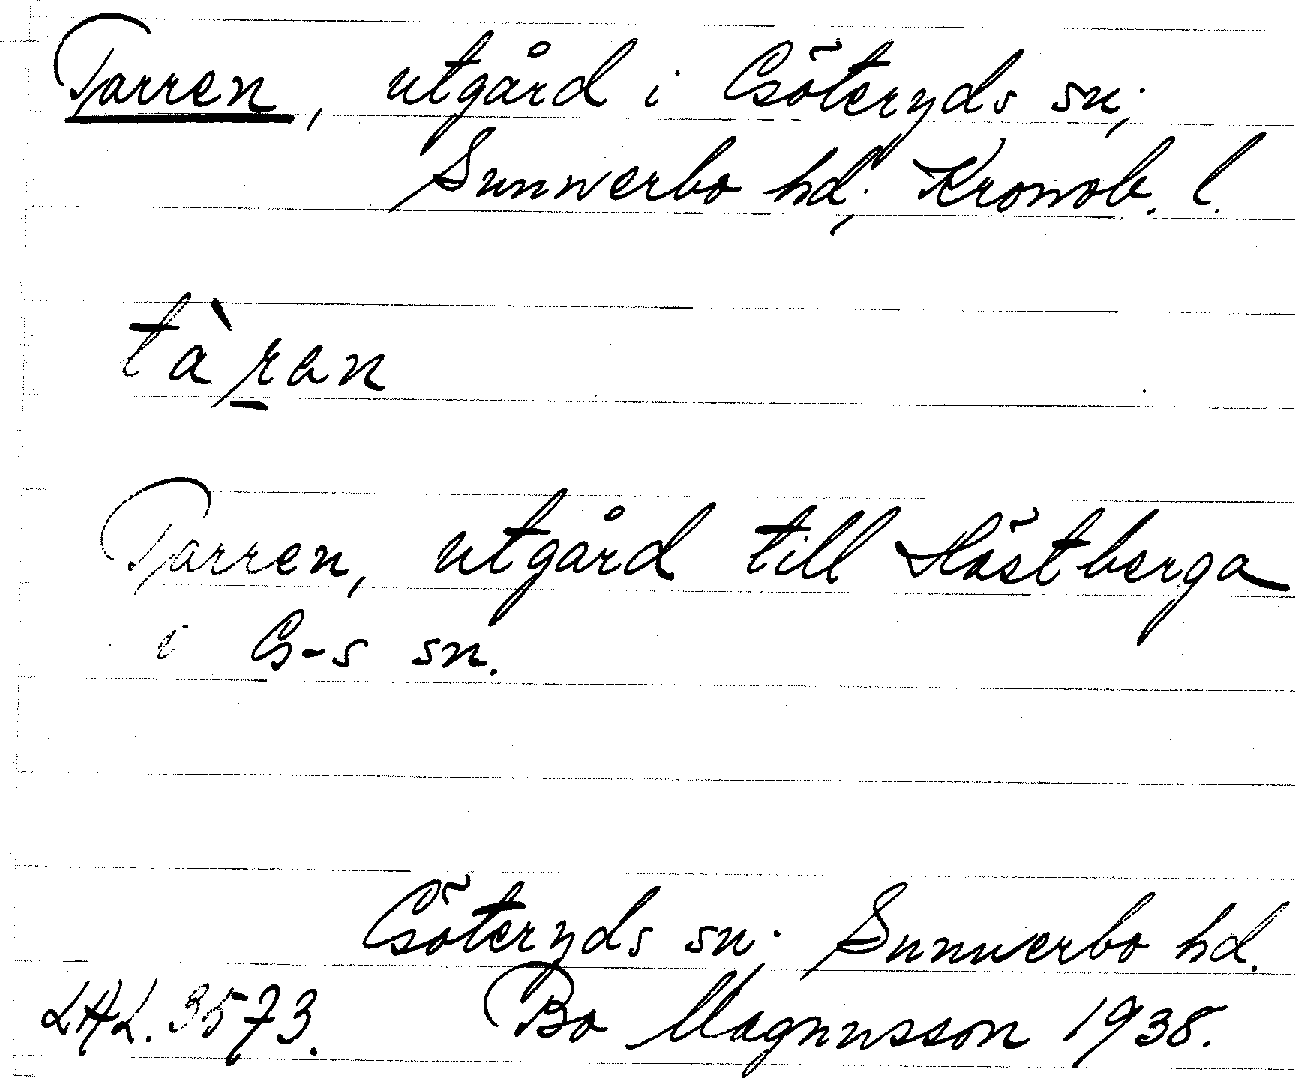 Tarren, utgård i Göteryds sn;
Sunnerbo hd; Kronob. l.
tàran
Tarren, utgård till Hästberga
i G-s sn.
Göteryds sn; Sunnerbo hd.
LAL. 3573. Bo Magnusson 1938.